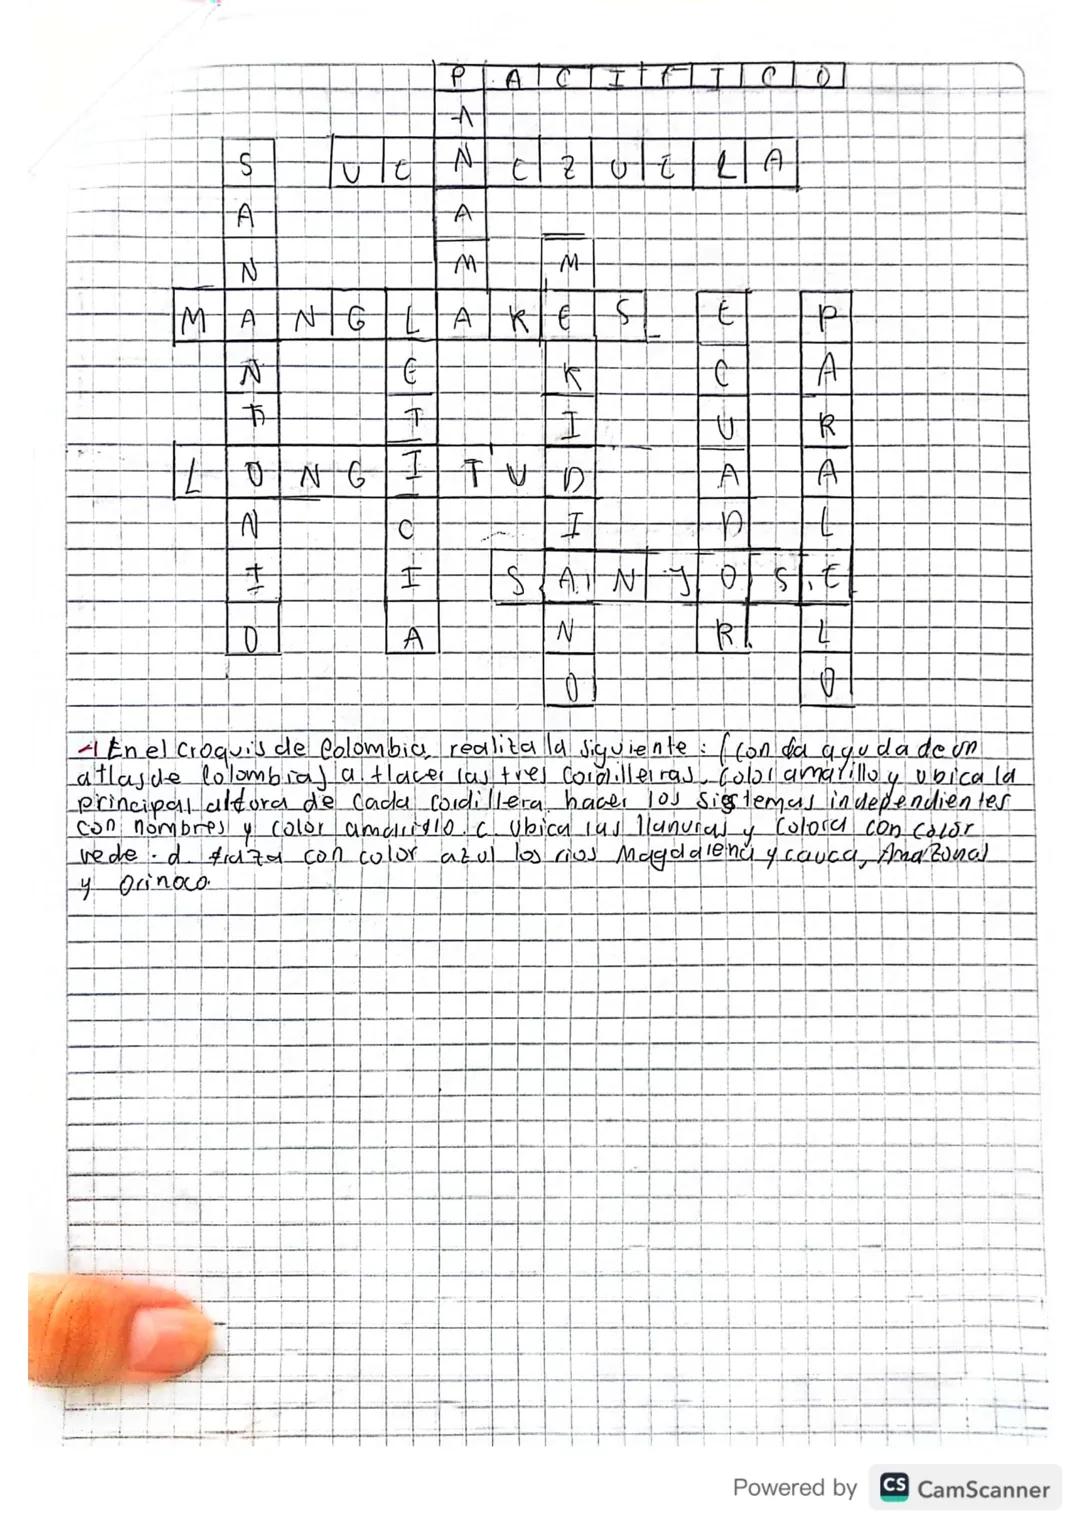 P A C I F I C O
A
S V E N E Z U E L A
A A
N M M
M A N G L A R E S E P
N E R C A
T T I U R
L O N G I T U D A A
N C I D L
I I S A N J O S E
O A N R L
O O
1 En el croquis de Colombia, realiza la siguiente: (con la ayuda de un
atlas de Colombia) a. tlacer las tres cordilleras, color amarillo y ubica la
principal altora de cada cordillera hacer los sistemas independientes
con nombres y color amarillo. c. Ubica las llanuras y colora con color
vede. d. traza con color azul los rios Magdalena y cauca, Amazonas
y Orinoco.
Powered by CS CamScanner